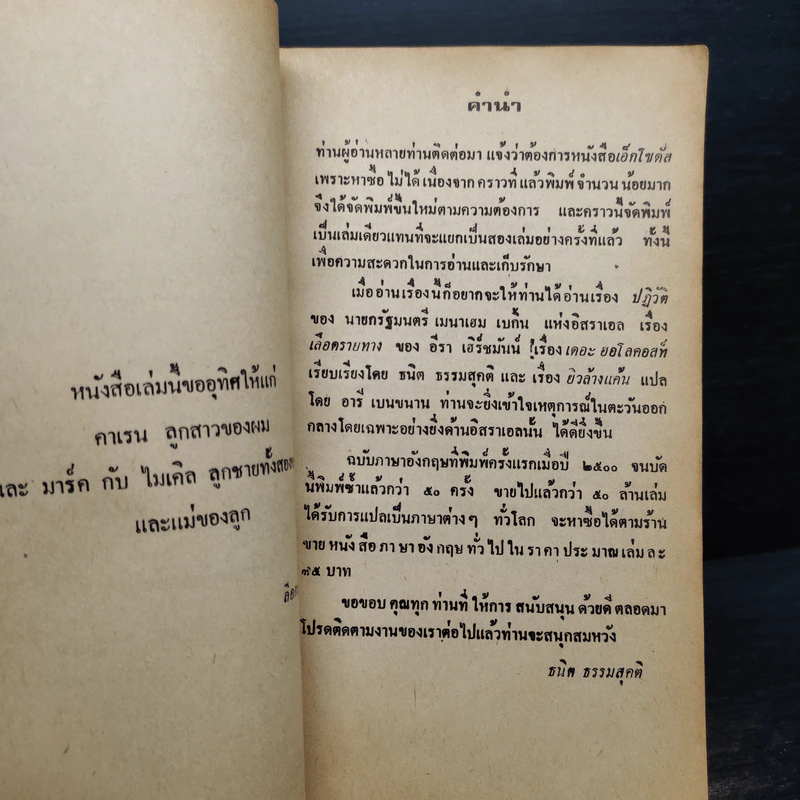 หนังสือเล่มนี้ขออุทิศให้แก่
คาเรน ลูกสาวของผม
และ มาร์ค กับ ไมเคิล ลูกชายทั้งสอง
และแม่ของลูก
คำนำ
ท่านผู้อ่านหลายท่านติดต่อมา แจ้งว่าต้องการหนังสือเอ็กโซดัส
เพราะหาซื้อ ไม่ได้ เนื่องจาก คราวที่ แล้วพิมพ์ จำนวน น้อยมาก
จึงได้จัดพิมพ์ขึ้นใหม่ตามความต้องการ และคราวนี้จัดพิมพ์
เป็นเล่มเดียวแทนที่จะแยกเป็นสองเล่มอย่างครั้งที่แล้ว ทั้งนี้
เพื่อความสะดวกในการอ่านและเก็บรักษา
เมื่อ อ่านเรื่องนี้ก็อยากจะให้ท่านได้อ่านเรื่อง ปฏิวัติ
ของ นายกรัฐมนตรี เมนาเฮม เบกิ้น แห่งอิสราเอล เรื่อง
เลือดรายทาง ของ อีรา เฮิร์ชมันน์ เรื่อง เดอะ ฮอโลคอสท์
เรียบเรียงโดย ธนิต ธรรมสุคติ และ เรื่อง ยิวล้างแค้น แปล
โดย อารี เบนขนาน ท่านจะยิ่งเข้าใจเหตุการณ์ในตะวันออก
กลางโดยเฉพาะอย่างยิ่งด้านอิสราเอลนั้น ได้ดียิ่งขึ้น
ฉบับภาษาอังกฤษที่พิมพ์ครั้งแรกเมื่อปี ๒๕๐๐ จนบัด
นี้พิมพ์ซ้ำแล้วกว่า ๕๐ ครั้ง ขายไปแล้วกว่า ๕๐ ล้านเล่ม
ได้รับการแปลเป็นภาษาต่างๆ ทั่วโลก จะหาซื้อได้ตามร้าน
ขาย หนัง สือ ภา ษา อัง กฤษ ทั่ว ไป ใน รา คา ประ มาณ เล่ม ละ
๗๕ บาท
ขอขอบ คุณทุก ท่านที่ ให้การ สนับสนุน ด้วยดี ตลอดมา
โปรดติดตามงานของเราต่อไปแล้วท่านจะสนุกสมหวัง
ธนิต ธรรมสุคติ